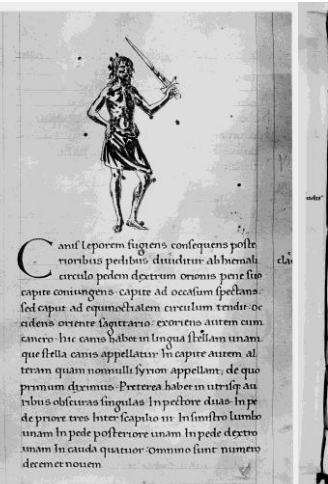 Canis leporem fugiens consequens poste
rioribus pedibus diuiditur ab hiemali
circulo pedem dextrum orionis pene suo
capite coniungens. capite ad occasum spectans.
sed caput ad equinoctialem circulum tendit. oc
cidens oriente sagittario. exoriens autem cum
cancro. hic canis habet in lingua stellam unam.
que stella canis appellatur. In capite autem al
teram quam nonnulli syrion appellant. de quo
primum diximus. Preterea habet in utrisque au
ribus obscuras singulas. In pectore duas. In pe
de priore tres. Inter scapilio iii. In sinistro lumbo
unam. In pede posteriore unam. In pede dextro
unam. In cauda quatuor. Omnino sunt numero
decem et nouem